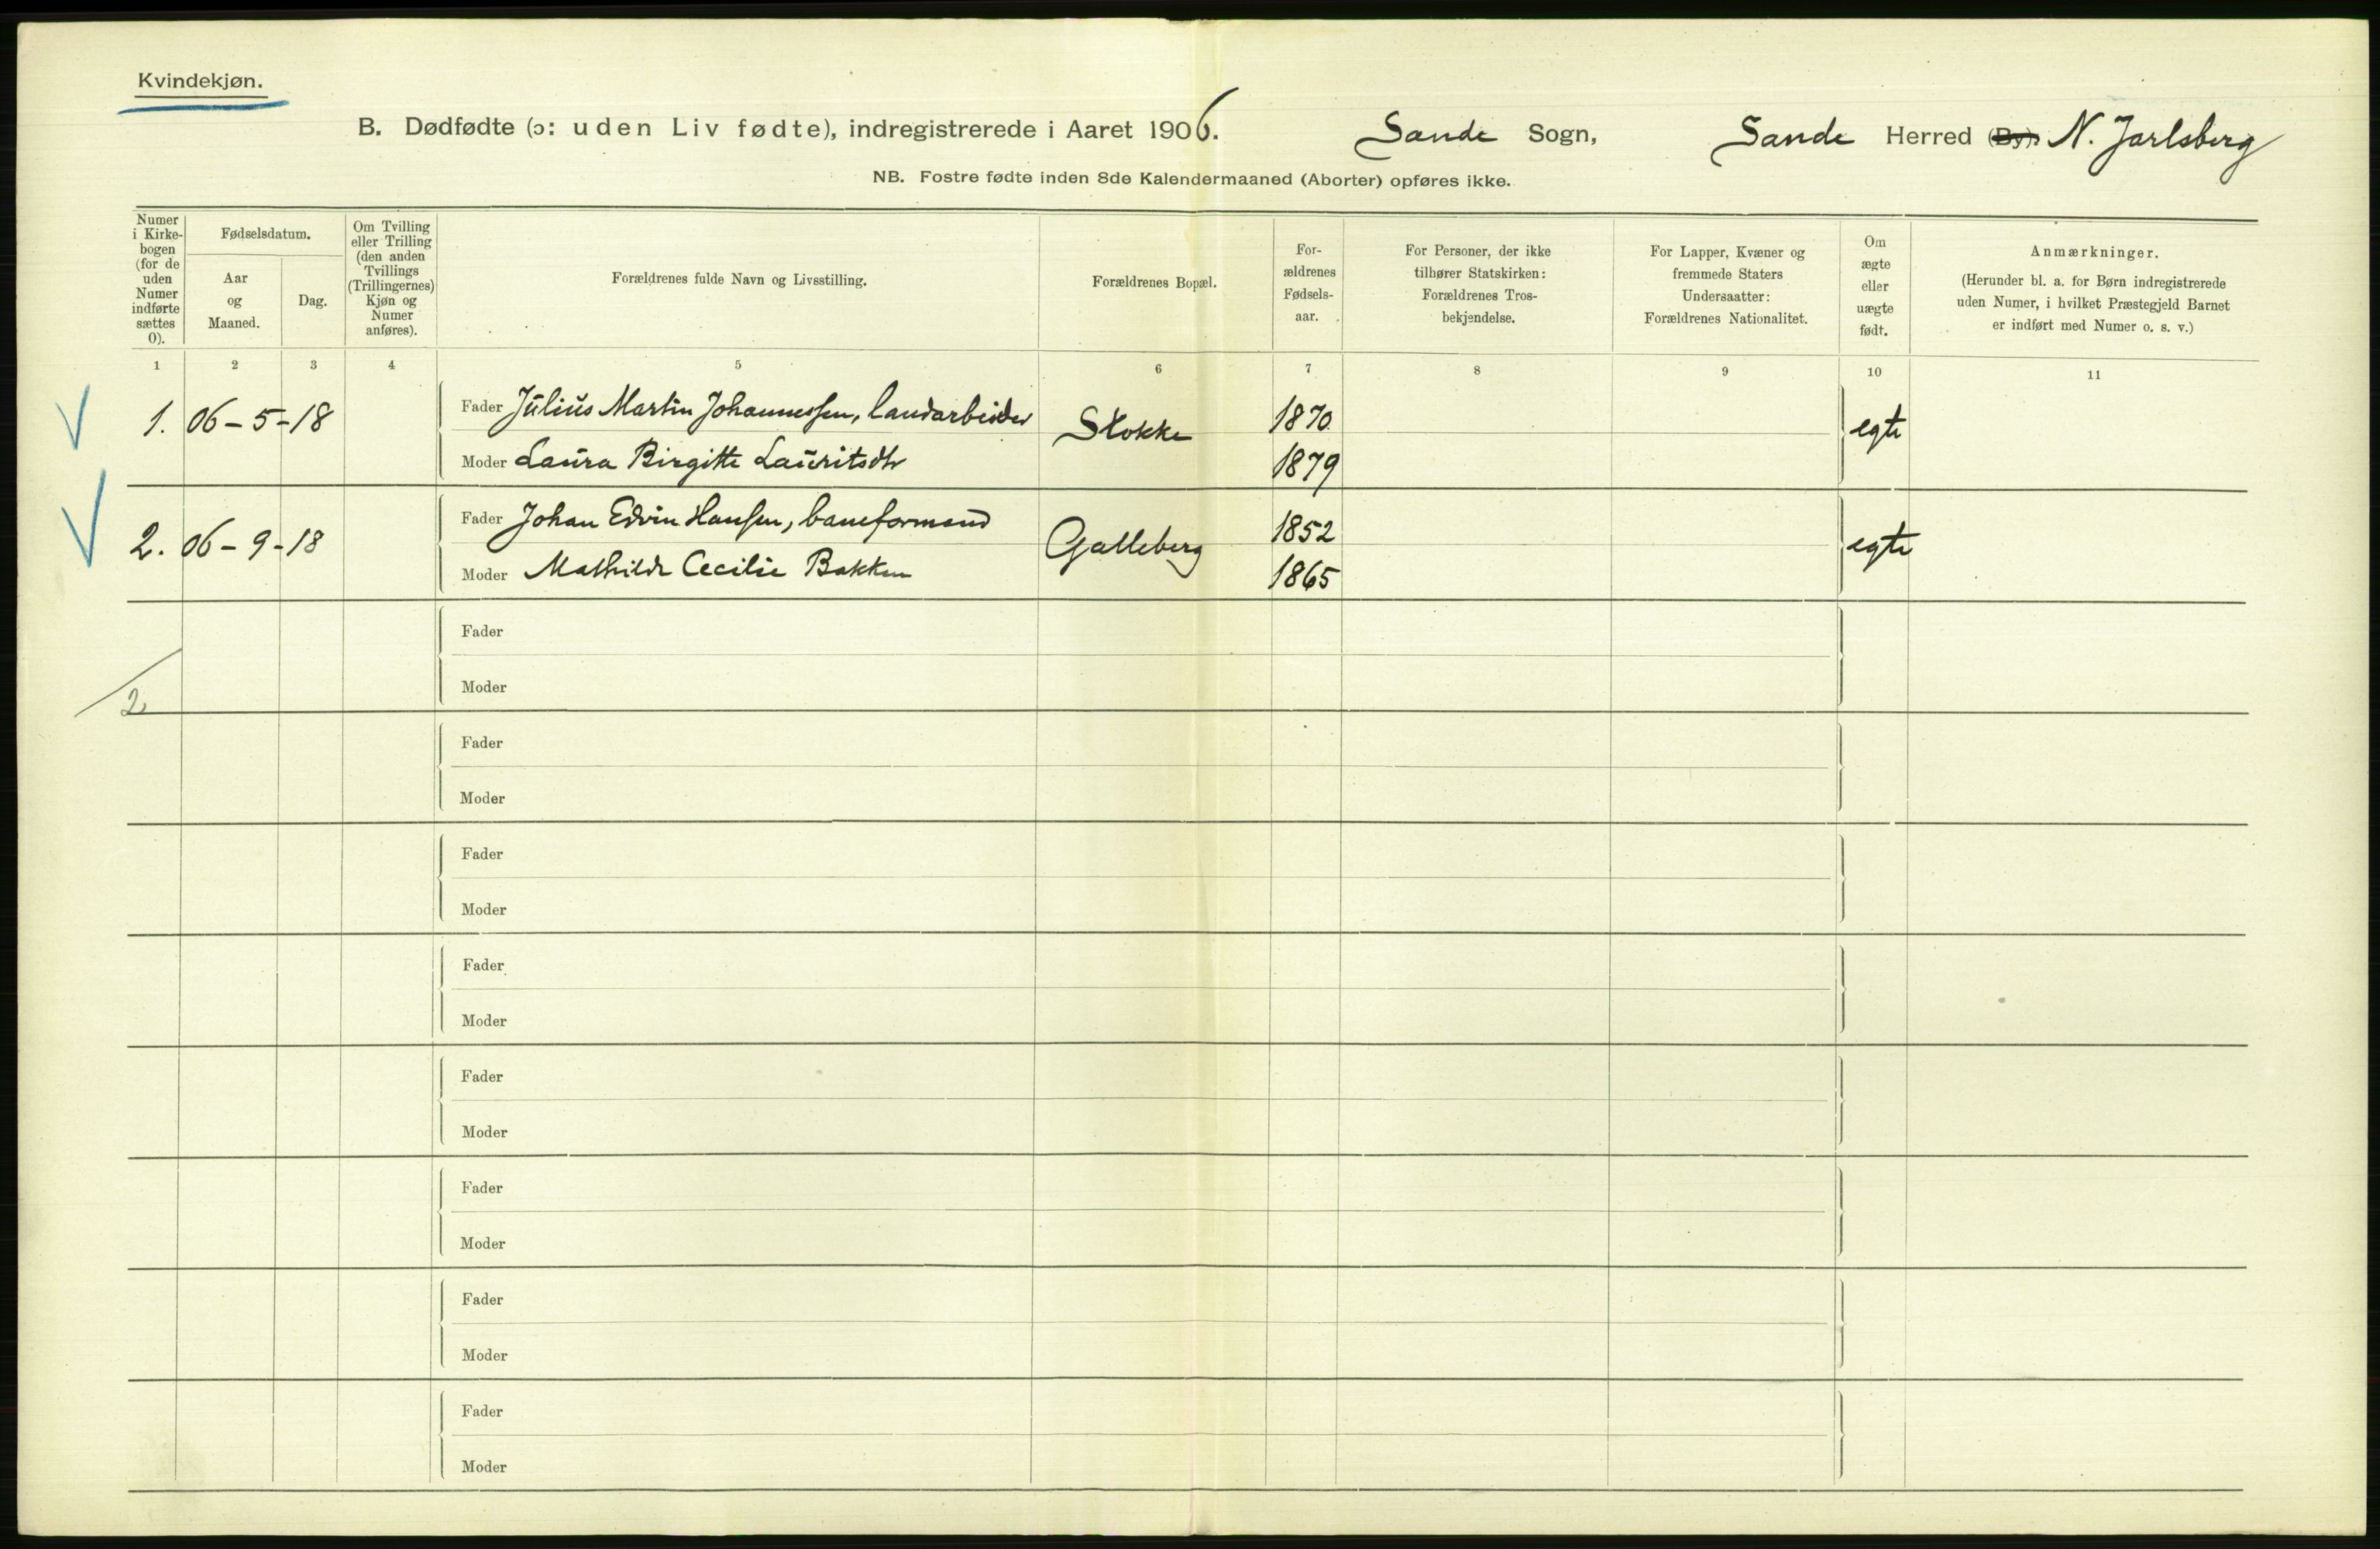 Kvindekjøn.
B. Dødfødte (ɔ: uden Liv fødte), indregistrerede i Aaret 1906. Sande Sogn, Sande Herred (By). N. Jarlsberg
NB. Fostre fødte inden 8de Kalendermaaned (Aborter) opføres ikke.
Numer
i Kirke-
bogen
(for de
uden
Numer
indførte
sættes
0).
Fødselsdatum.
Aar
og
Maaned.
Dag.
Om Tvilling
eller Trilling
(den anden
Tvillings
(Trillingernes)
Kjøn og
Numer
anføres).
Forældrenes fulde Navn og Livsstilling.
Forældrenes Bopæl.
For-
ældrenes
Fødsels-
aar.
For Personer, der ikke
tilhører Statskirken:
Forældrenes Tros-
bekjendelse.
For Lapper, Kvæner og
fremmede Staters
Undersaatter:
Forældrenes Nationalitet.
Om
ægte
eller
uægte
født.
Anmærkninger.
(Herunder bl. a. for Børn indregistrerede
uden Numer, i hvilket Præstegjeld Barnet
er indført med Numer o. s. v.)
1 2 3 4 5 6 7 8 9 10 11
1. 06-5-18 Fader Julius Martin Johannessen, landarbeider Stokke 1870 egte
Moder Laura Birgitte Lauritsdtr 1879
2. 06-9-18 Fader Johan Edvin Hansen, baneformand Galleberg 1852 egte
Moder Mathilde Cecilie Bakken 1865
Fader
2
Moder
Fader
Moder
Fader
Moder
Fader
Moder
Fader
Moder
Fader
Moder
Fader
Moder
Fader
Moder